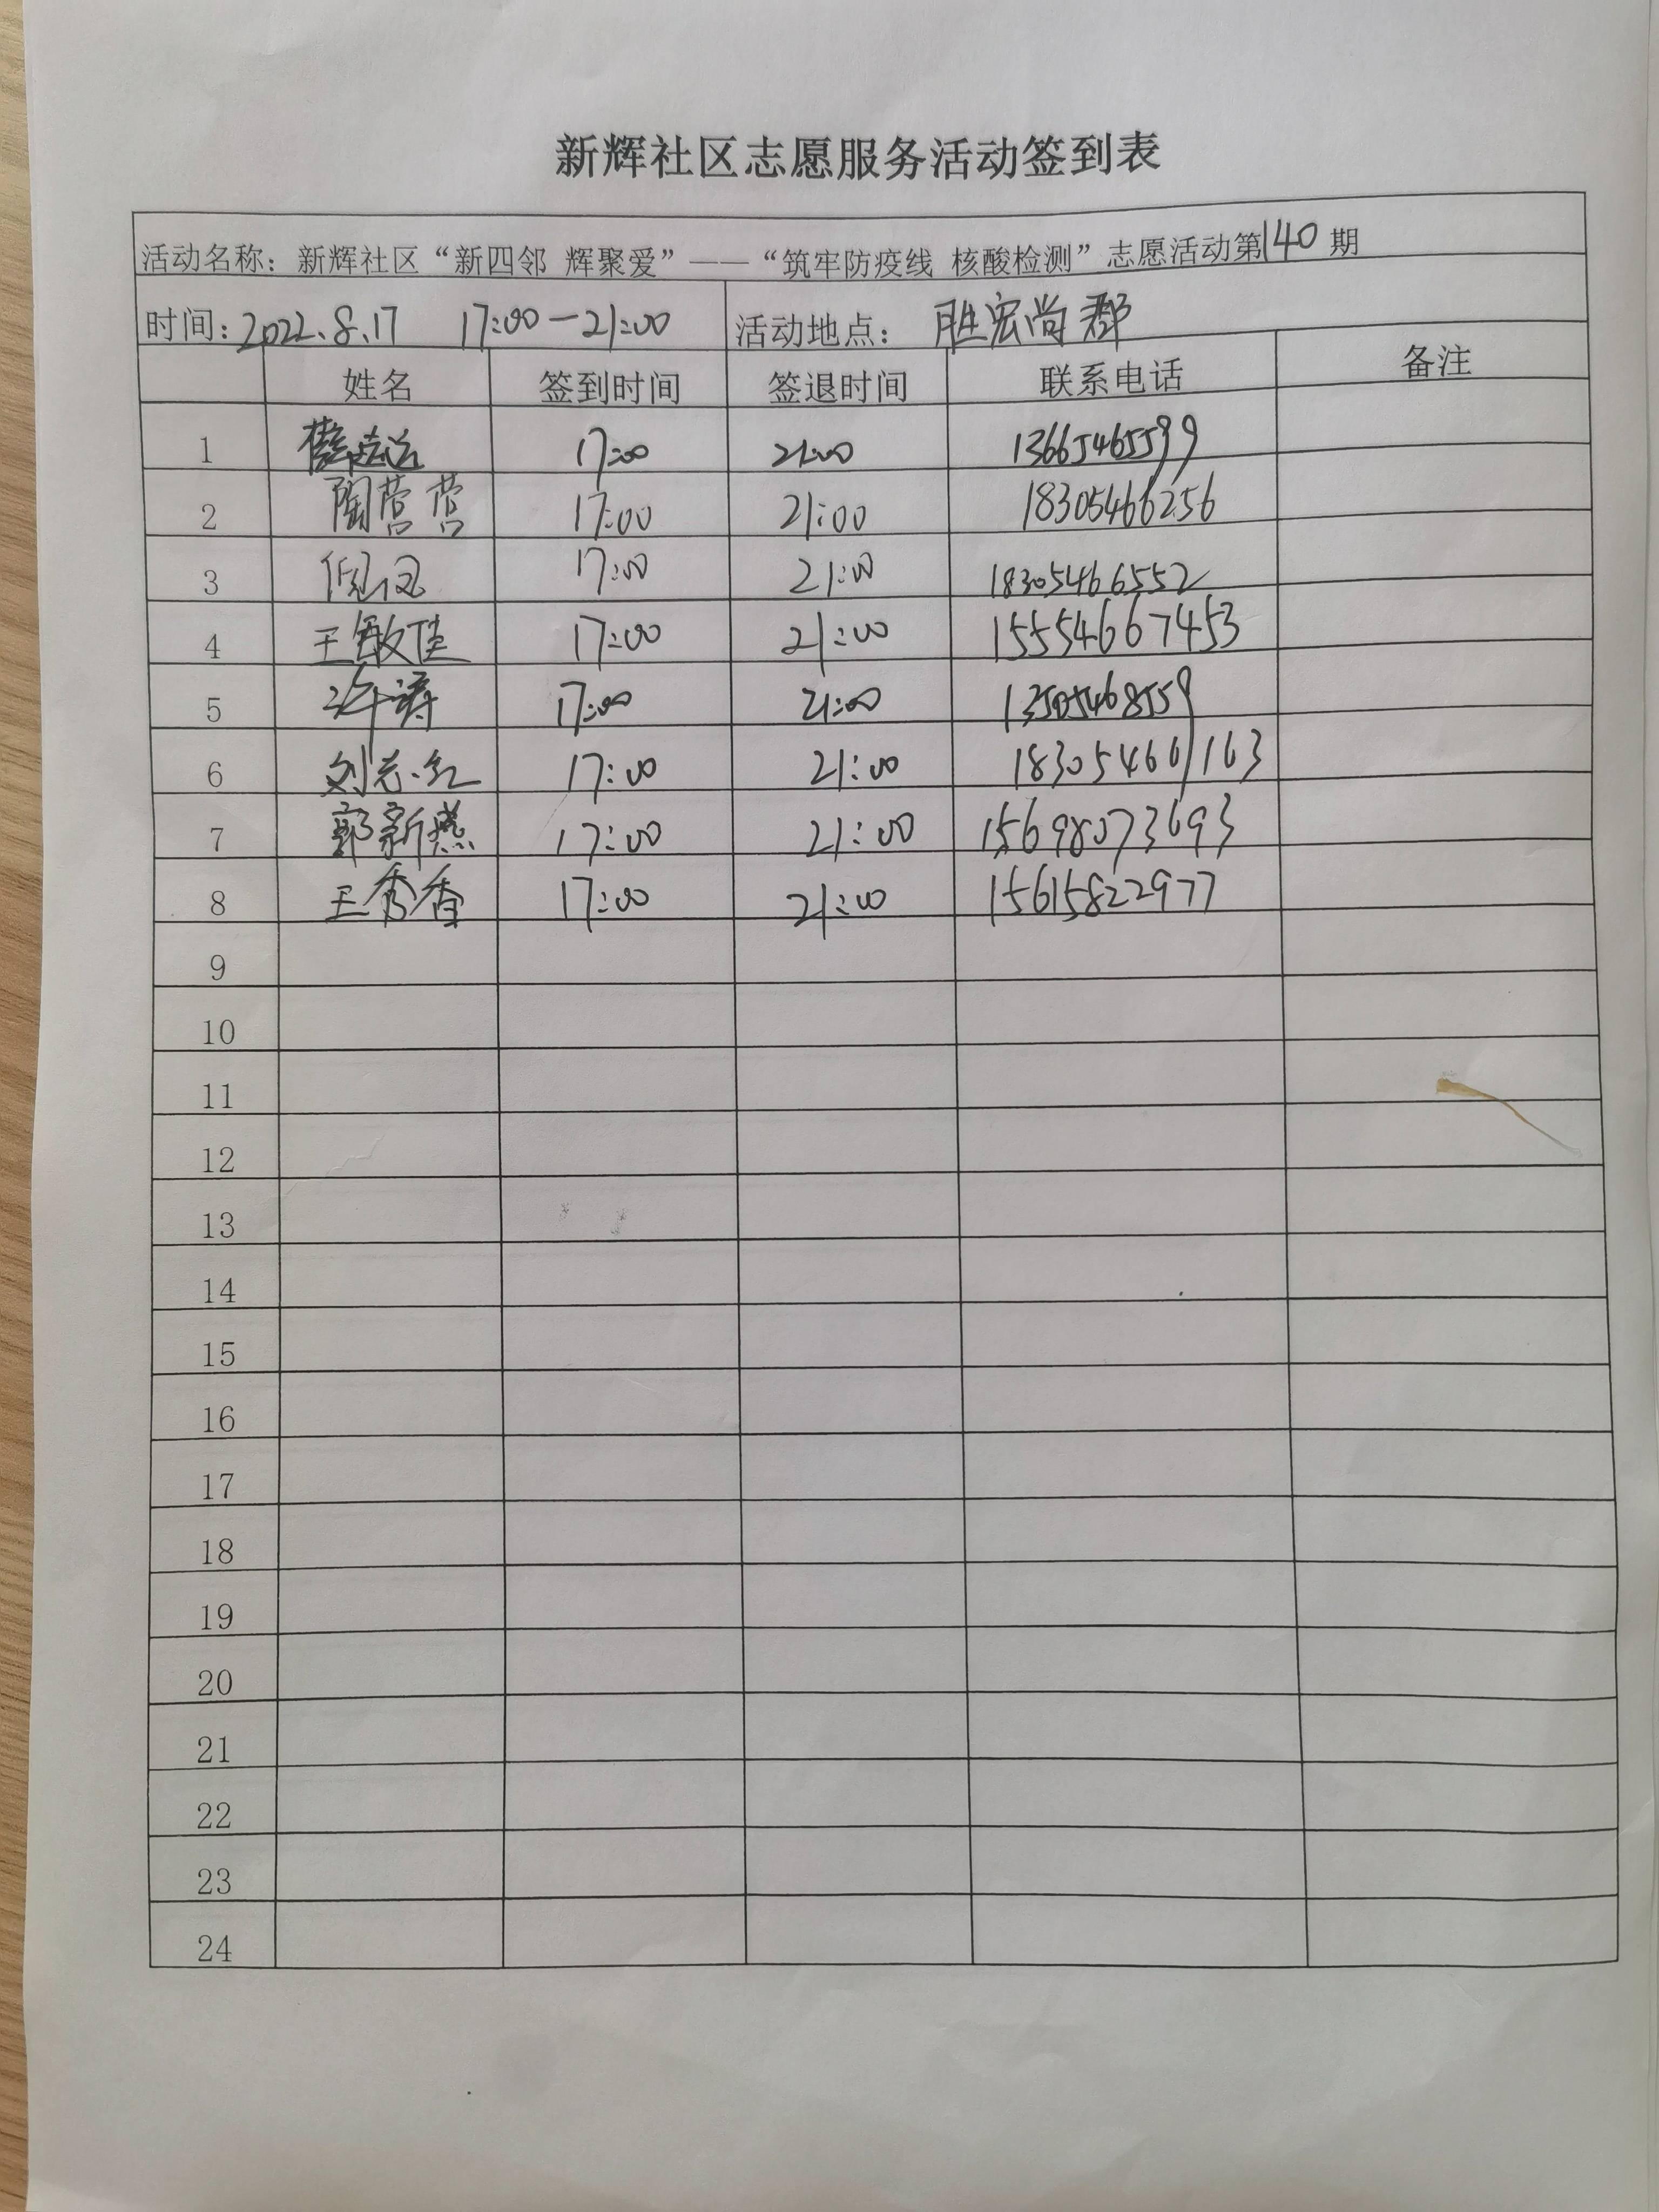 新辉社区志愿服务活动签到表
活动名称：新辉社区“新四邻 辉聚爱”——“筑牢防疫线 核酸检测”志愿活动第140期
时间：2022.8.17 17:00—21:00 活动地点：胜宏尚郡
姓名 签到时间 签退时间 联系电话 备注
1 17:00 21:00 13665465599
2 陶营营 17:00 21:00 18305466256
3 17:00 21:00 18305466552
4 王敏佳 17:00 21:00 15554667453
5 许涛 17:00 21:00 13505468559
6 刘志红 17:00 21:00 18305466163
7 郭新燕 17:00 21:00 15698073693
8 王秀香 17:00 21:00 15615822977
9
10
11
12
13
14
15
16
17
18
19
20
21
22
23
24